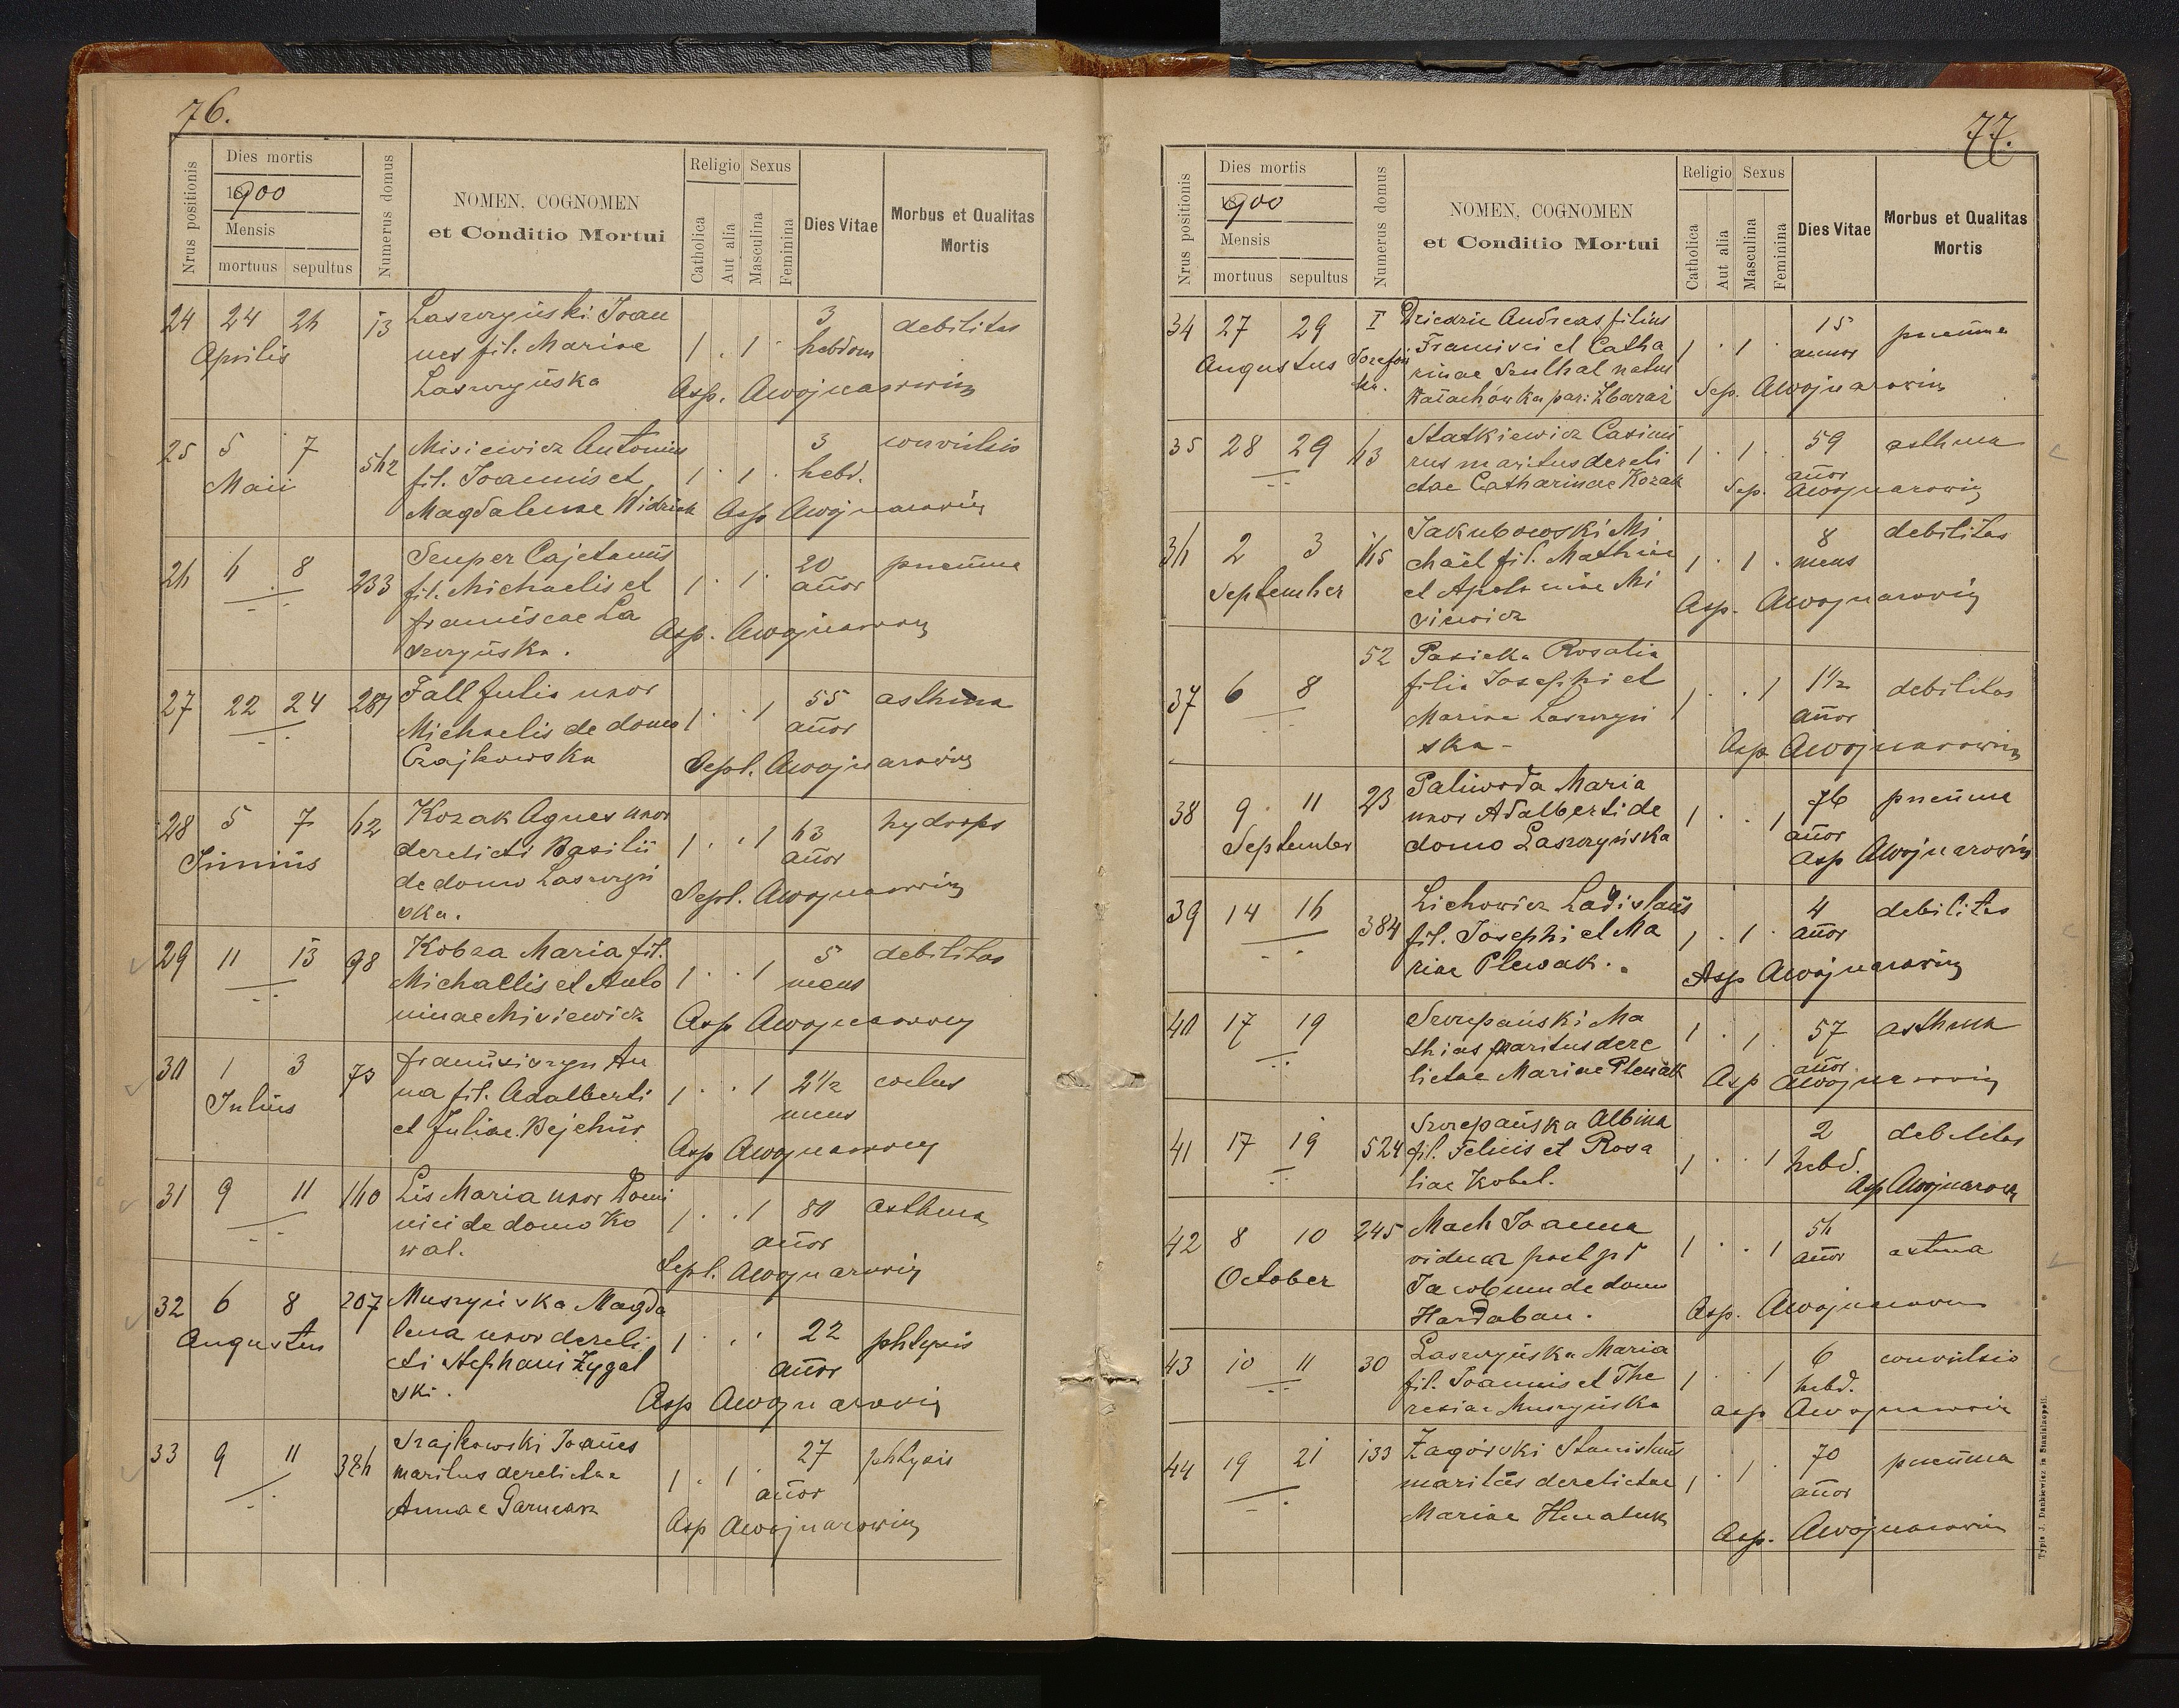 76.
Nrus positionis
Dies mortis
1900
Mensis
mortuus sepultus
Numerus domus
NOMEN, COGNOMEN
et Conditio Mortui
Religio
Catholica
Aut alia
Sexus
Masculina
Feminina
Dies Vitae
Morbus et Qualitas
Mortis
24 24 26 13 Laszczyński Joan 3 debilitas
Aprilis nes fil. Mariae 1 . 1 . hebdom
Laszczyńska Asp. AWojnarowicz
25 5 7 562 Misiewicz Antonius 3 convulsio
Maii fil. Joannis et 1 . 1 . hebd.
Magdalenae Widrick Asp AWojnarowicz
26 6 8 233 Semper Cajetanus 20 pneume
fil. Michaelis et 1 . 1 . anor
Franciscae La
szczyńska. Asp. AWojnarowicz
27 22 24 281 Fall Julia uxor 55 asthma
Michaelis de domo 1 . . 1 anor
Czajkowska Sepl. AWojnarowicz
28 5 7 62 Kozak Agnes uxor 63 hydrops
Junius derelicti Basilii 1 . . 1 anor
de domo Laszczyń
ska. Sepl. AWojnarowicz
29 11 13 98 Kobza Maria fil. 5 debilitas
Michaelis et Anto 1 . . 1 mens
ninae Misiewicz Asp AWojnarowicz
30 1 3 73 Franciszczyn An 2 1/2
Julius na fil. Adalberti 1 . . 1 mens
et Juliae Asp AWojnarowicz
31 9 11 160 Lis Maria uxor Domi 80 asthma
nici de domo Ko 1 . . 1 anor
wal. Sepl. AWojnarowicz
32 6 8 207 Muszyńska Magda 22 phtysis
Augustus lena uxor dereli 1 anor
cti Stephani Zygal
ski. Asp AWojnarowicz
33 9 11 386 Szajkowski Joanes 27 phtysis
maritus derelictae 1 . 1 . anor
Annae Garncarz Asp AWojnarowicz
77.
Nrus positionis
Dies mortis
1900
Mensis
mortuus sepultus
Numerus domus
NOMEN, COGNOMEN
et Conditio Mortui
Religio
Catholica
Aut alia
Sexus
Masculina
Feminina
Dies Vitae
Morbus et Qualitas
Mortis
34 27 29 I Andreas filius 15 pneume
Augustus Francisci et Catha 1 . 1 . annor
rinae natus
par: Zbaraż Sep. AWojnarowicz
35 28 29 63 Statkiewicz Casimi 59 asthma
rus maritus dereli 1 . 1 . anor
ctae Catharinae Kozak Sep. AWojnarowicz
36 2 3 165 Jakubowski Mi 8 debilitas
September chael fil. Mathiae 1 . 1 . mens
et Apoloniae Mi
siewicz Asp. AWojnarowicz
37 6 8 52 Pasieka Rosalia 1 1/2 debilitas
filia Josephi et 1 . . 1 anor
Mariae Laszczyń
ska - Asp AWojnarowicz
38 9 11 23 Paliwoda Maria 76 pneume
September uxor Adalberti de 1 . . 1 anor
domo Laszczyńska Asp AWojnarowicz
39 14 16 384 Lichowicz Ladislaus 4 debilitas
fil. Josephi et Ma 1 . 1 . anor
riae Plewak. Asp AWojnarowicz
40 17 19 Szczepański Ma 57 asthma
thias maritus dere 1 . 1 . anor
lictae Mariae Plewak Asp AWojnarowicz
41 17 19 524 Szczepańska Albina 2 debilitas
fil. Felicis et Rosa 1 . . 1 hebd.
liae Kobel. Asp AWojnarowicz
42 8 10 245 Mach Joanna 56 astma
October vidua post pd 1 . . 1 anor
Jacobum de domo
Hardaban. Asp. AWojnarowicz
43 10 11 30 Laszczyńska Maria 6 convulsio
fil. Joannis et The 1 . . 1 hebd.
resiae Muszyńska asp AWojnarowicz
44 19 21 133 Zagórski Stanislaus 70 pneuma
maritus derelictae 1 . 1 . anor
Mariae Hnatuk Asp. AWojnarowicz
Typis J. Dankiewicz in Stanislaopoli.